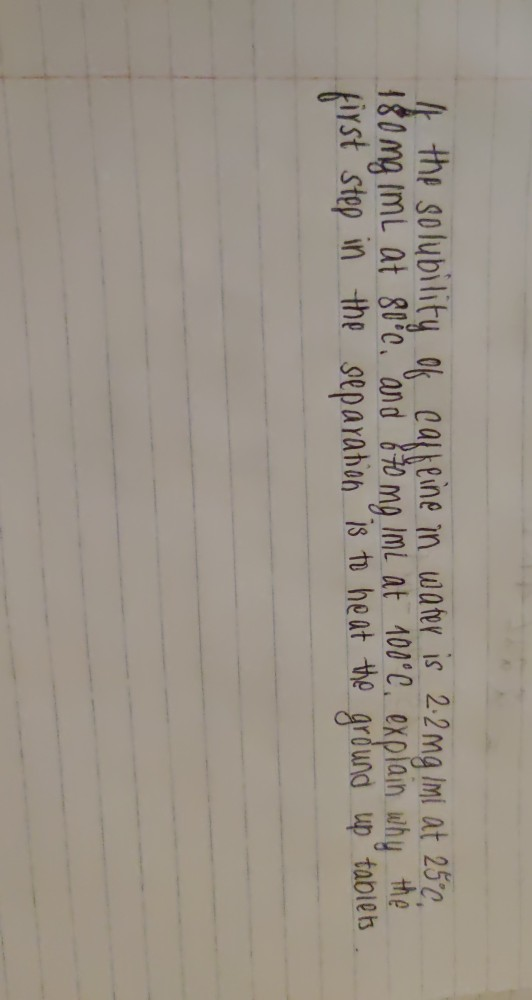 If the solubility of caffeine in water is 2.2mg/ml at 25°C,
180mg/mL at 80°C, and 670mg/mL at 100°C, explain why the
first step in the separation is to heat the ground up tablets.